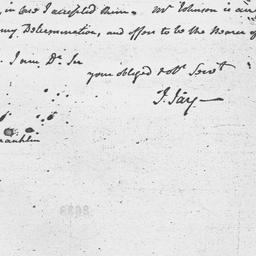 in case I accepted them. Mr Johnson is an
my Determination, and offers to be the Bearer of
. I am Dr Sir
your obliged & obt Servt
J. Jay
ranklin